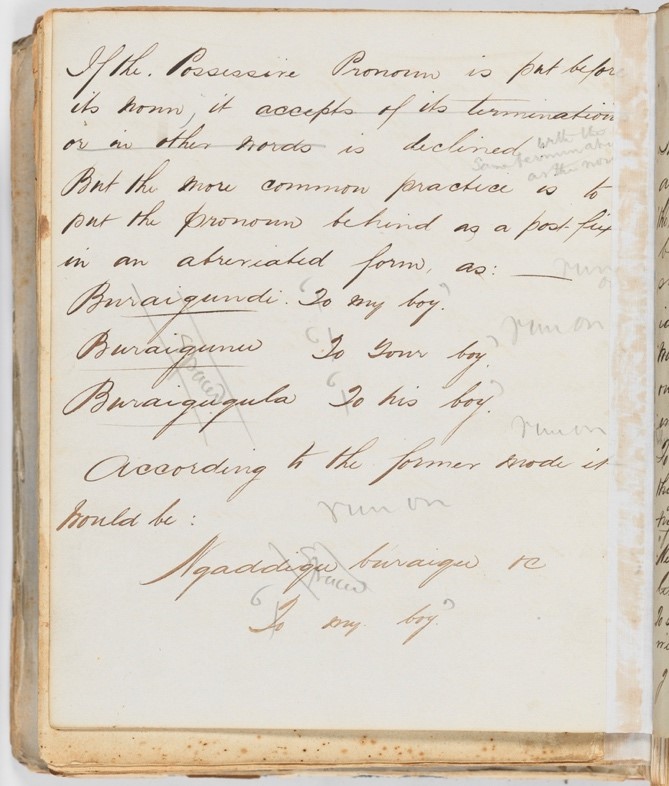 If the. Possessive Pronoun is put before
its noun, it accepts of its termination
or in other words is declined with the
same termination
as the noun
But the more common practice is to
put the pronoun behind as a post-fix
in an abreviated form, as: —
run on
Buraigundi. To my boy.
run on
Buraigunu To your boy.
spaced
Buraigugula To his boy.
run on
According to the former mode it
would be:
run on
Ngaddigu buraigu &c
spaced
To my boy.